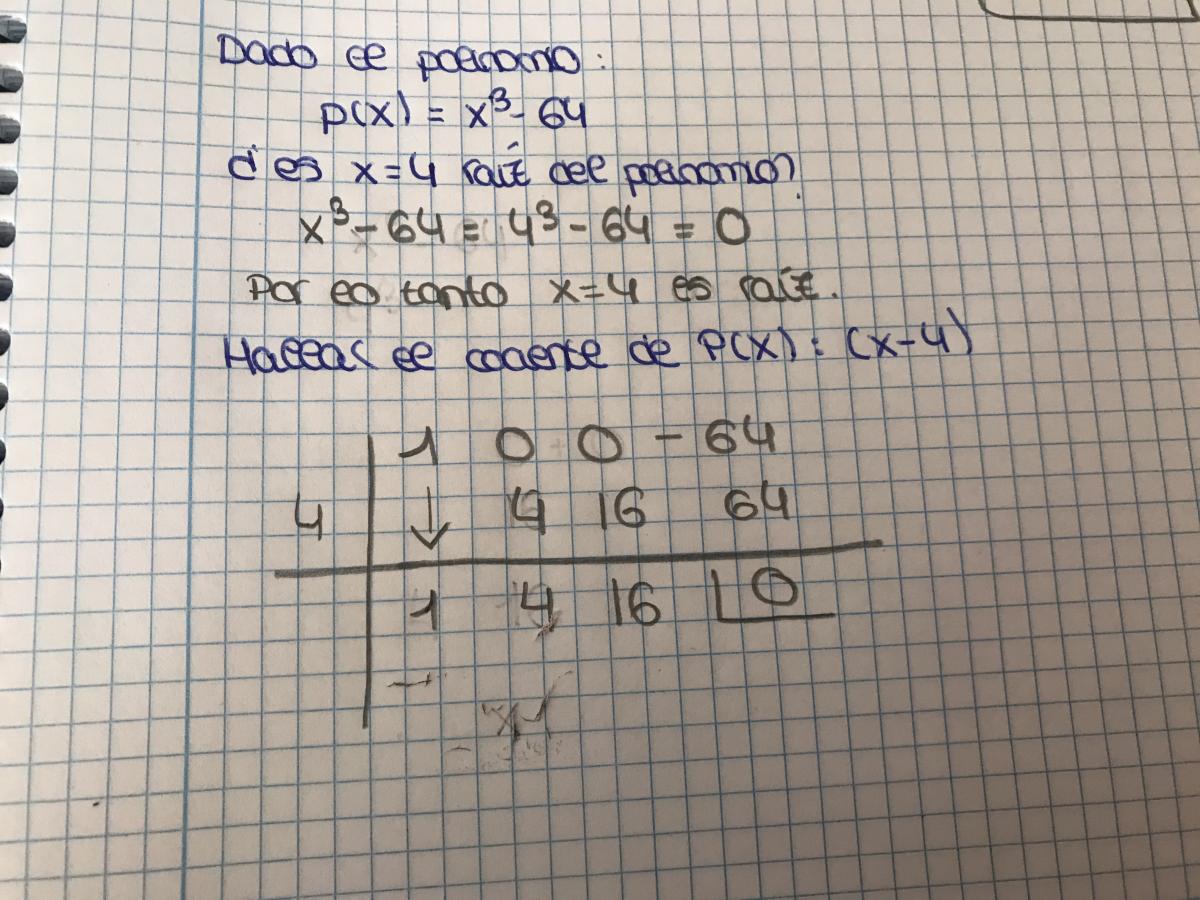 Dado el polinomio:
P(x) = x³ - 64
¿es x=4 raíz del polinomio?
x³ - 64 = 4³ - 64 = 0
Por lo tanto x=4 es raíz.
Hallar el cociente de P(x) : (x-4)
1 0 0 - 64
4 ↓ 4 16 64
1 4 16 0